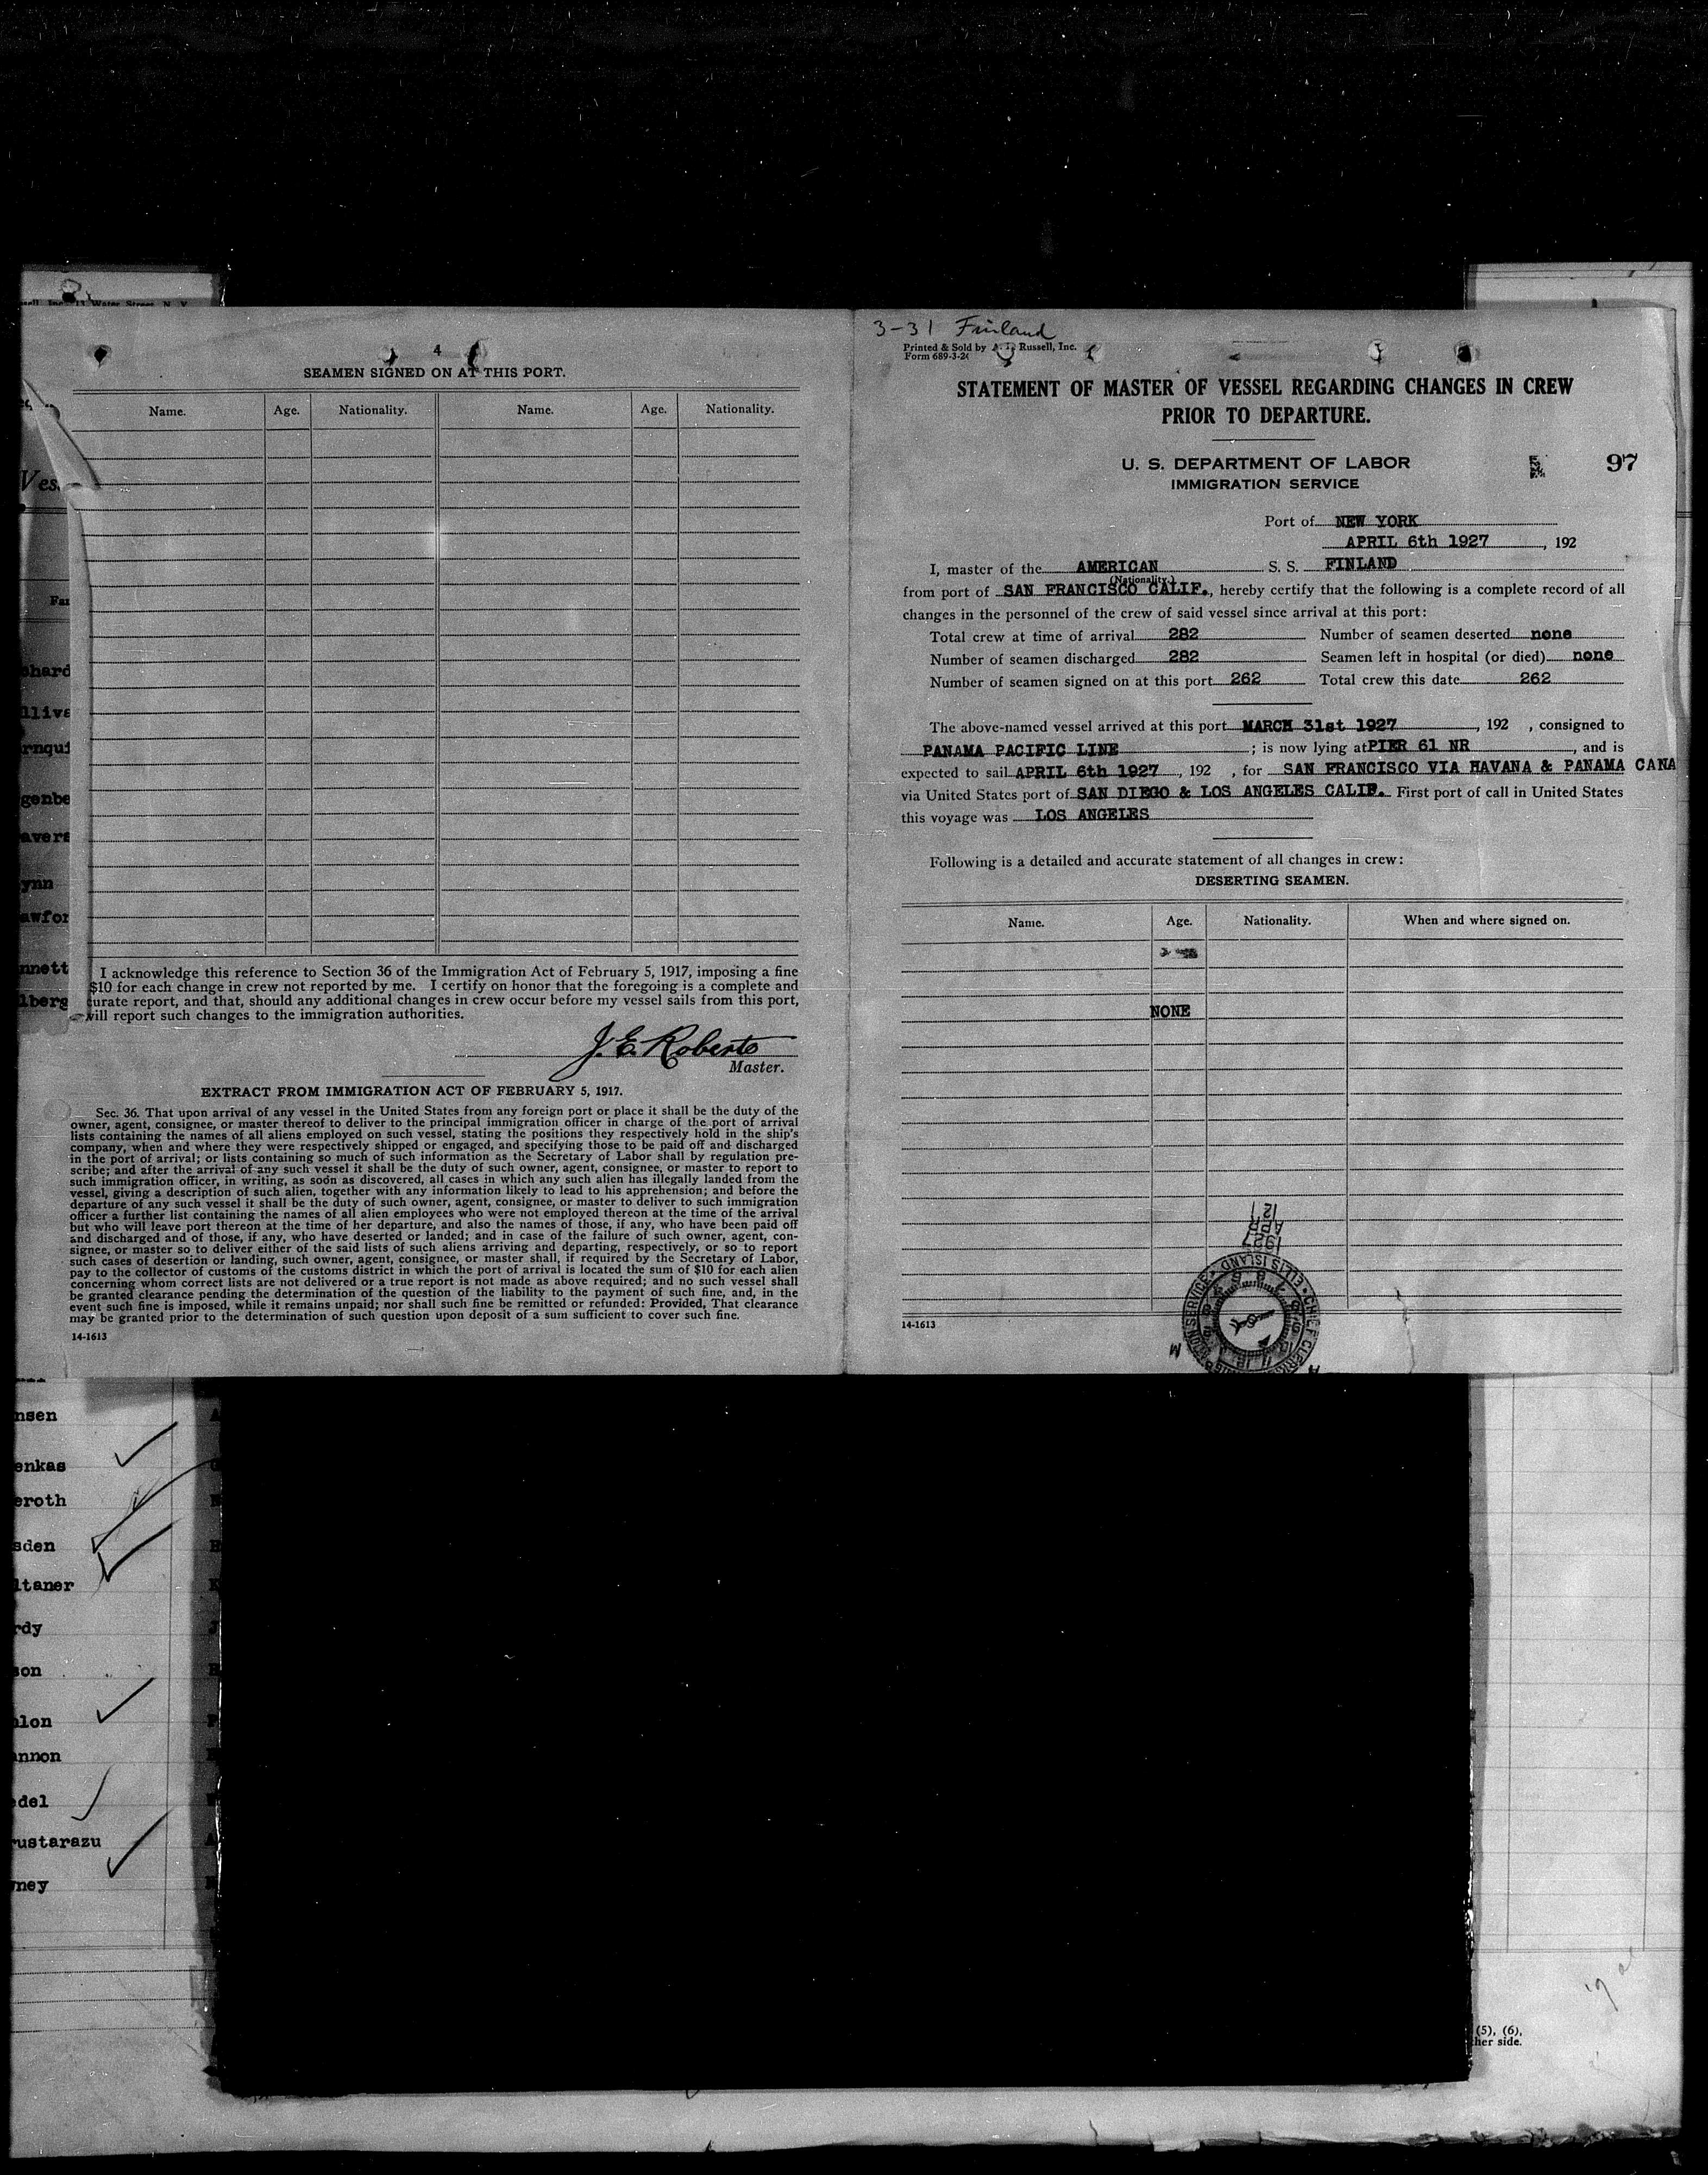 4
SEAMEN SIGNED ON AT THIS PORT.
Name. Age. Nationality. Name. Age. Nationality.
I acknowledge this reference to Section 36 of the Immigration Act of February 5, 1917, imposing a fine
$10 for each change in crew not reported by me. I certify on honor that the foregoing is a complete and
curate report, and that, should any additional changes in crew occur before my vessel sails from this port,
will report such changes to the immigration authorities.
J. E. Roberts
Master.
EXTRACT FROM IMMIGRATION ACT OF FEBRUARY 5, 1917.
Sec. 36. That upon arrival of any vessel in the United States from any foreign port or place it shall be the duty of the
owner, agent, consignee, or master thereof to deliver to the principal immigration officer in charge of the port of arrival
lists containing the names of all aliens employed on such vessel, stating the positions they respectively hold in the ship's
company, when and where they were respectively shipped or engaged, and specifying those to be paid off and discharged
in the port of arrival; or lists containing so much of such information as the Secretary of Labor shall by regulation pre-
scribe; and after the arrival of any such vessel it shall be the duty of such owner, agent, consignee, or master to report to
such immigration officer, in writing, as soon as discovered, all cases in which any such alien has illegally landed from the
vessel, giving a description of such alien, together with any information likely to lead to his apprehension; and before the
departure of any such vessel it shall be the duty of such owner, agent, consignee, or master to deliver to such immigration
officer a further list containing the names of all alien employees who were not employed thereon at the time of the arrival
but who will leave port thereon at the time of her departure, and also the names of those, if any, who have been paid off
and discharged and of those, if any, who have deserted or landed; and in case of the failure of such owner, agent, con-
signee, or master so to deliver either of the said lists of such aliens arriving and departing, respectively, or so to report
such cases of desertion or landing, such owner, agent, consignee, or master shall, if required by the Secretary of Labor,
pay to the collector of customs of the customs district in which the port of arrival is located the sum of $10 for each alien
concerning whom correct lists are not delivered or a true report is not made as above required; and no such vessel shall
be granted clearance pending the determination of the question of the liability to the payment of such fine, and, in the
event such fine is imposed, while it remains unpaid; nor shall such fine be remitted or refunded: Provided, That clearance
may be granted prior to the determination of such question upon deposit of a sum sufficient to cover such fine.
14-1613
3-31 Finland
Printed & Sold by Russell, Inc.
Form 689-3-2
STATEMENT OF MASTER OF VESSEL REGARDING CHANGES IN CREW
PRIOR TO DEPARTURE.
U. S. DEPARTMENT OF LABOR
IMMIGRATION SERVICE
97
Port of NEW YORK
APRIL 6th 1927, 192
I, master of the AMERICAN S. S. FINLAND
(Nationality.)
from port of SAN FRANCISCO CALIF., hereby certify that the following is a complete record of all
changes in the personnel of the crew of said vessel since arrival at this port:
Total crew at time of arrival 282 Number of seamen deserted none
Number of seamen discharged 282 Seamen left in hospital (or died) none
Number of seamen signed on at this port 262 Total crew this date 262
The above-named vessel arrived at this port MARCH 31st 1927, 192 , consigned to
PANAMA PACIFIC LINE ; is now lying at PIER 61 NR , and is
expected to sail APRIL 6th 1927, 192 , for SAN FRANCISCO VIA HAVANA & PANAMA CANA
via United States port of SAN DIEGO & LOS ANGELES CALIF. First port of call in United States
this voyage was LOS ANGELES
Following is a detailed and accurate statement of all changes in crew:
DESERTING SEAMEN.
Name. Age. Nationality. When and where signed on.
NONE
1927
APR
12
ELLIS ISLAND CHIEF CLERK
14-1613
Ves
hard
lliva
rnqui
genbe
avers
ynn
awfor
nnett
lberg
nsen
enkas
eroth
sden
ltaner
rdy
son
nlon
annon
edel
rustarazu
ney
(5), (6),
her side.